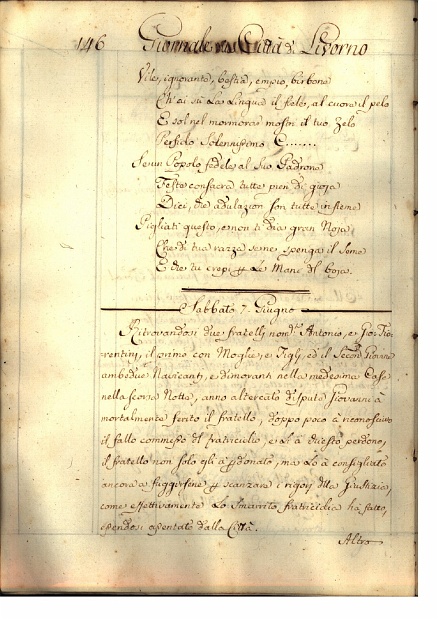 146 Giornale della Città di Livorno
Vile, ignorante, bestia, empio, birbone
Ch'ai sù La Lingua il fiele, al cuore il pelo
E sol nel mormorar mostri il tuo Zelo
Perfido Solennissimo C.......
Se un Popolo fedele al Suo Padrone
Feste consacra tutte pien di gioja
Dici, che adulazion son tutte insieme
Pigliati questo, e non ti dia gran Noja
Che di tua razza seme spenga il Seme
E che tu crepi p Le Mani del boja.
Sabbato 7. Giugno
Ritrovandosi due fratelli nom.ti Antonio, e Gio: Fio-
rentini, il primo con Moglie, e Figlj, ed il Secondo Giovane
ambedue Naviganti, e dimoranti nella medesima Casa
nella scorsa Notte, anno altercato disputa Giovanni à
mortalmente ferito il fratello, doppo poco à riconosciuto
il fallo commesso di fratricidio, e Li à chiesto perdono,
il fratello non solo gli à pdonato, ma Lo à consigliato
ancora a fuggirsene p scanzare i rigori della Giustizia,
come effettivamente Lo Smarrito fratricida ha fatto,
essendosi assentato dalla Città.
Altro